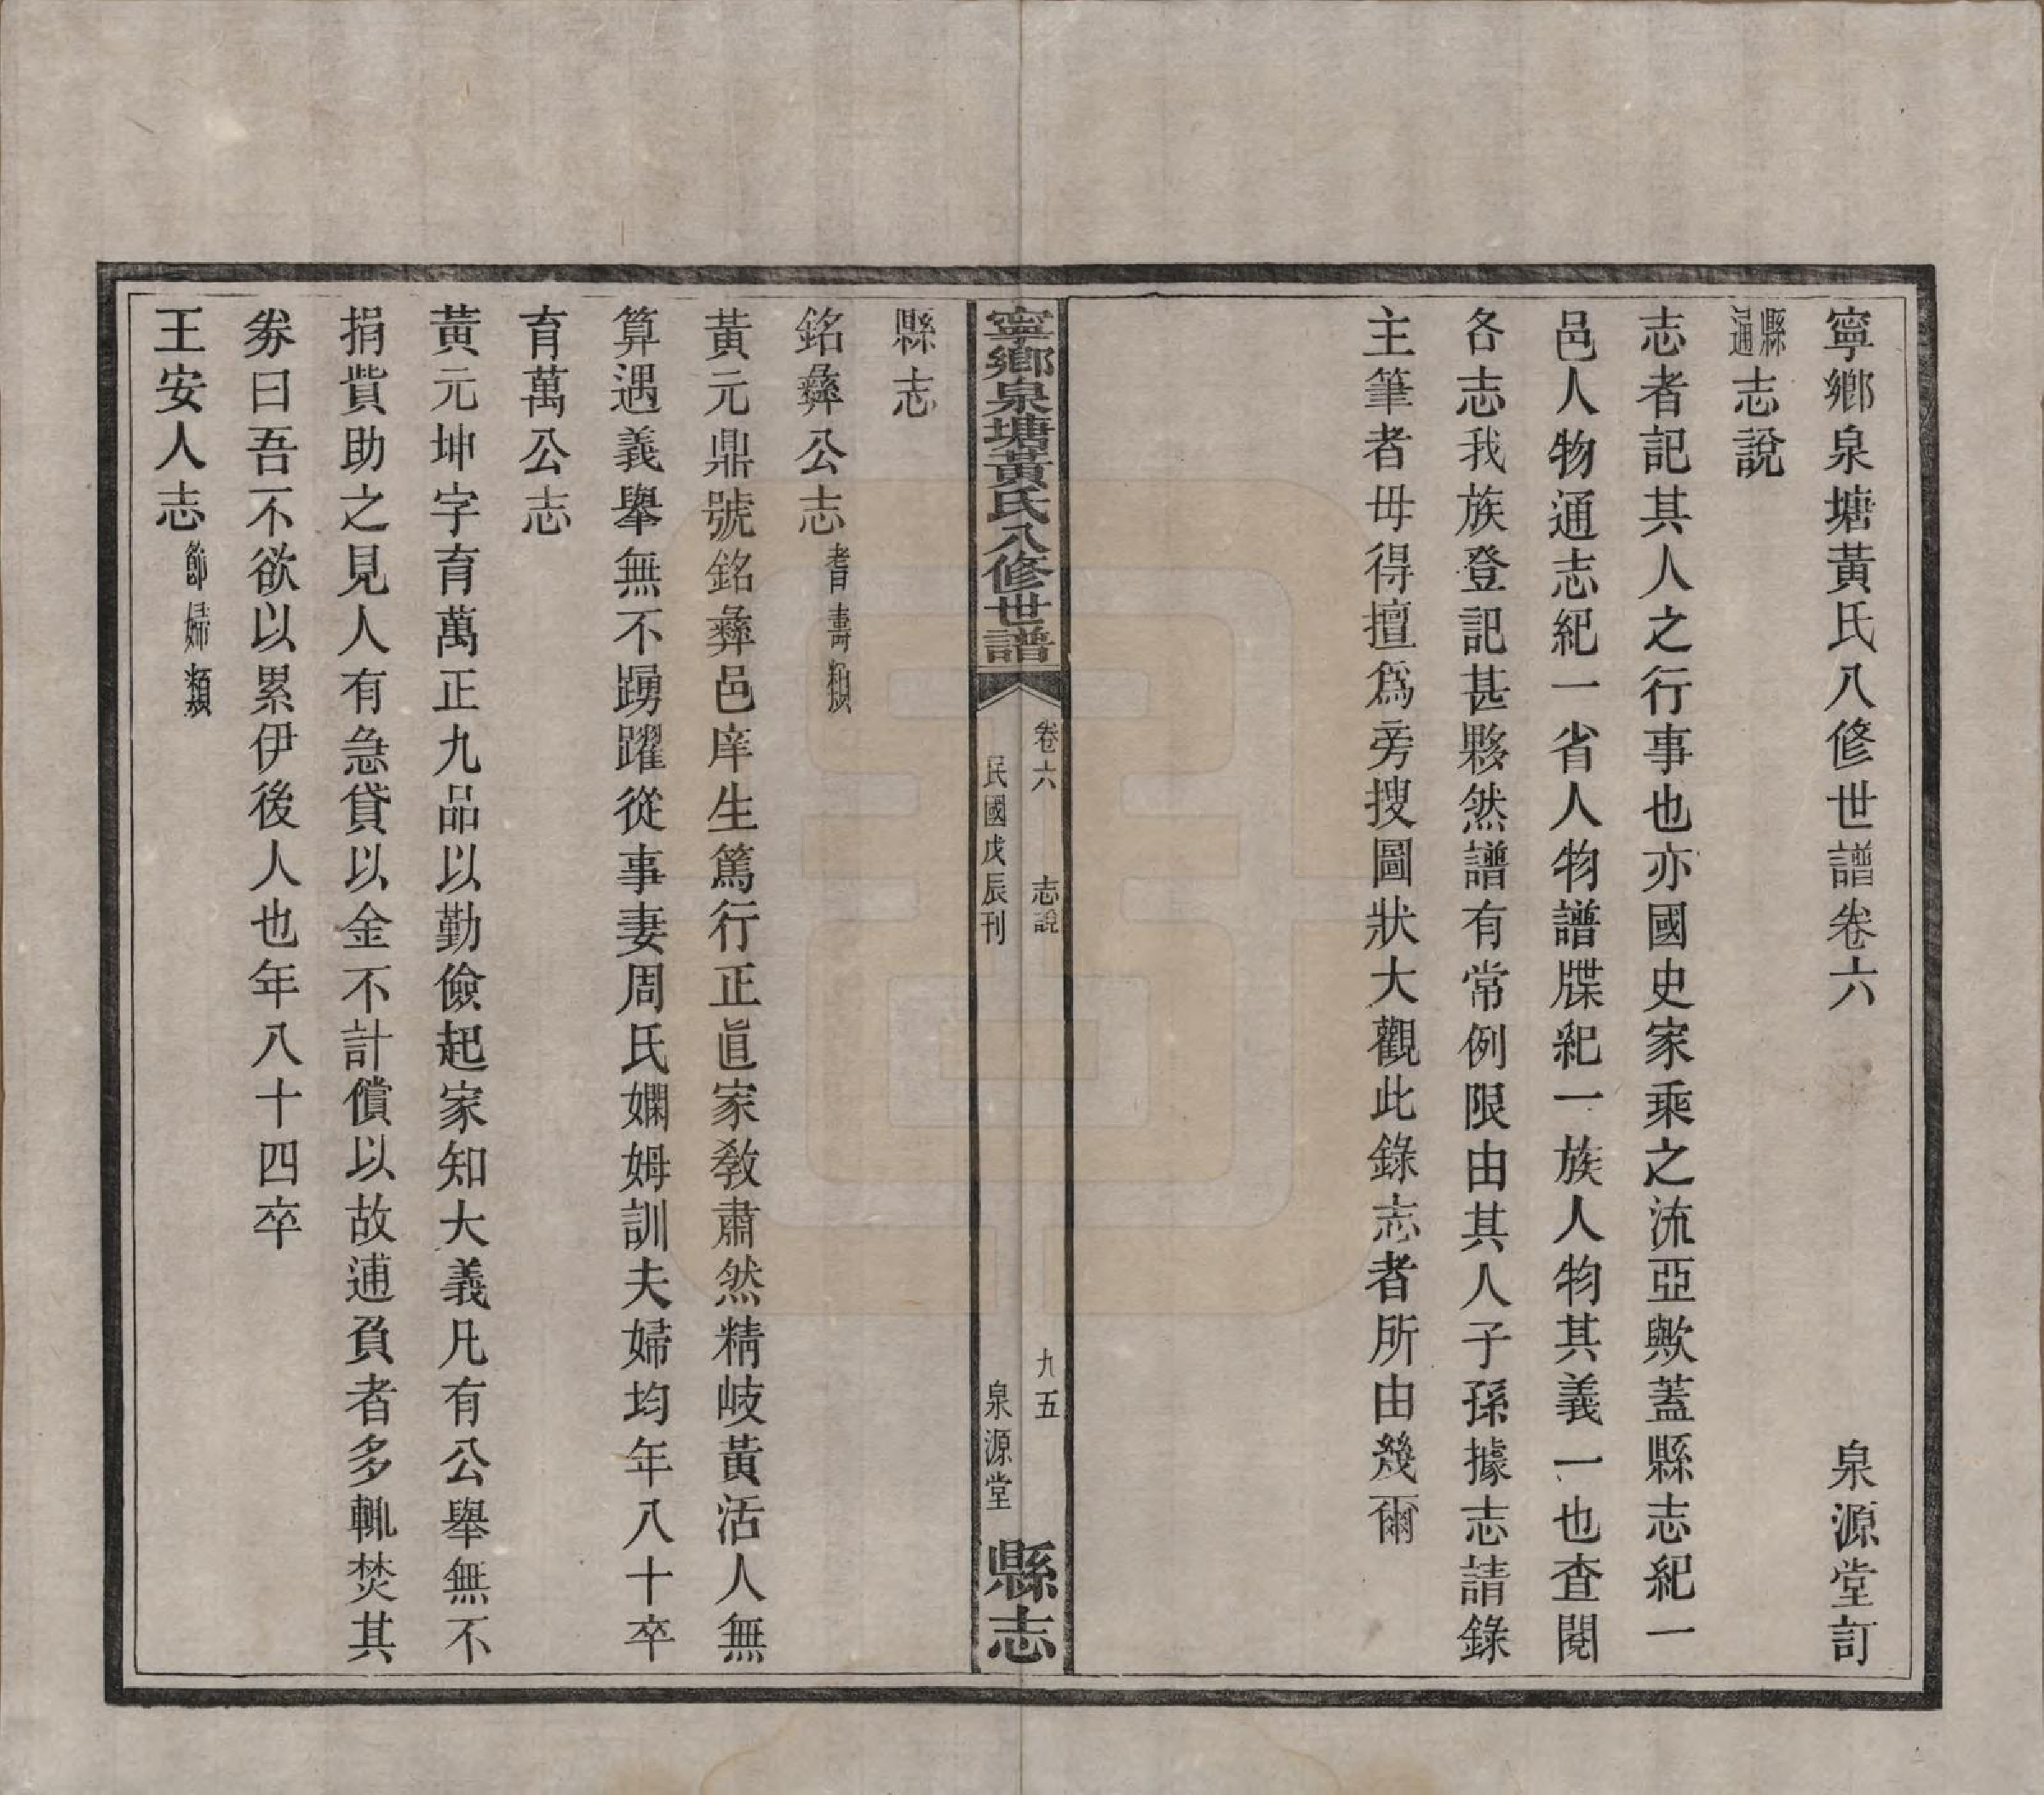 寧鄉泉塘黃氏八修世譜卷六　泉源堂訂
縣通志說
志者記其人之行事也亦國史家乘之流亞歟蓋縣志紀一
邑人物通志紀一省人物譜牒紀一族人物其義一也查閱
各志我族登記甚夥然譜有常例限由其人子孫據志請錄
主筆者毋得擅爲旁搜圖狀大觀此錄志者所由幾爾
寧鄉泉塘黃氏八修世譜
卷六　志說　九五
民國戊辰刊　泉源堂
縣志
縣志
銘彝公志耆壽類
黃元鼎號銘彝邑庠生篤行正眞家教肅然精岐黃活人無
算遇義舉無不踴躍從事妻周氏嫻姆訓夫婦均年八十卒
育萬公志
黃元坤字育萬正九品以勤儉起家知大義凡有公舉無不
捐貲助之見人有急貸以金不計償以故逋負者多輒焚其
券曰吾不欲以累伊後人也年八十四卒
王安人志節婦類